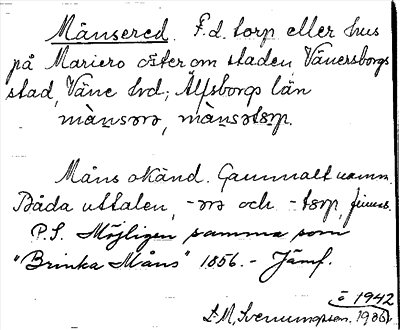 Månsered. F.d. torp eller hus
på Mariero öster om staden, Vänersborgs
stad, Väne hd; Älfsborgs län
månsərə, månsətörp.
Måns okänd. Gammalt namn.
Båda uttalen, -rə och -törp, finnas.
P.S. Möjligen samma som
"Brinka Måns" 1856. - Jämf.
1942
D. M. Svenungsson. 1936.